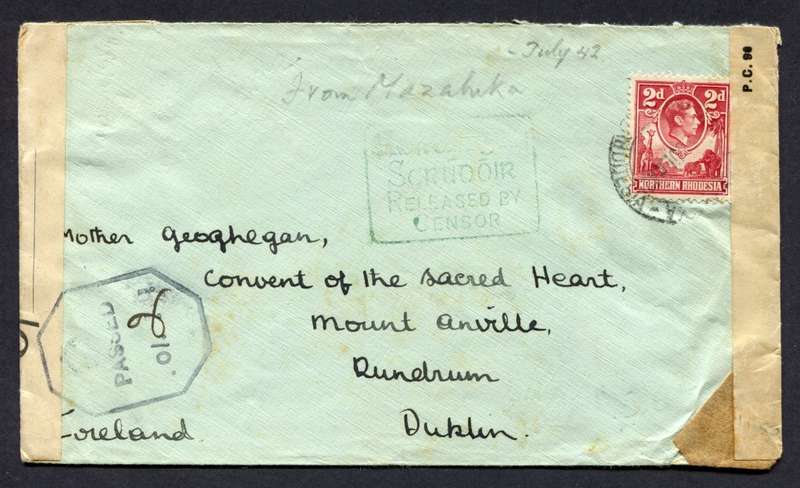 July 42
From Mazabuka
P.C. 90
2d 2d
NORTHERN RHODESIA
SCRÚDÓIR
RELEASED BY
CENSOR
Mother Geoghegan,
Convent of the Sacred Heart,
Mount Anville,
Dundrum
Dublin.
PASSED